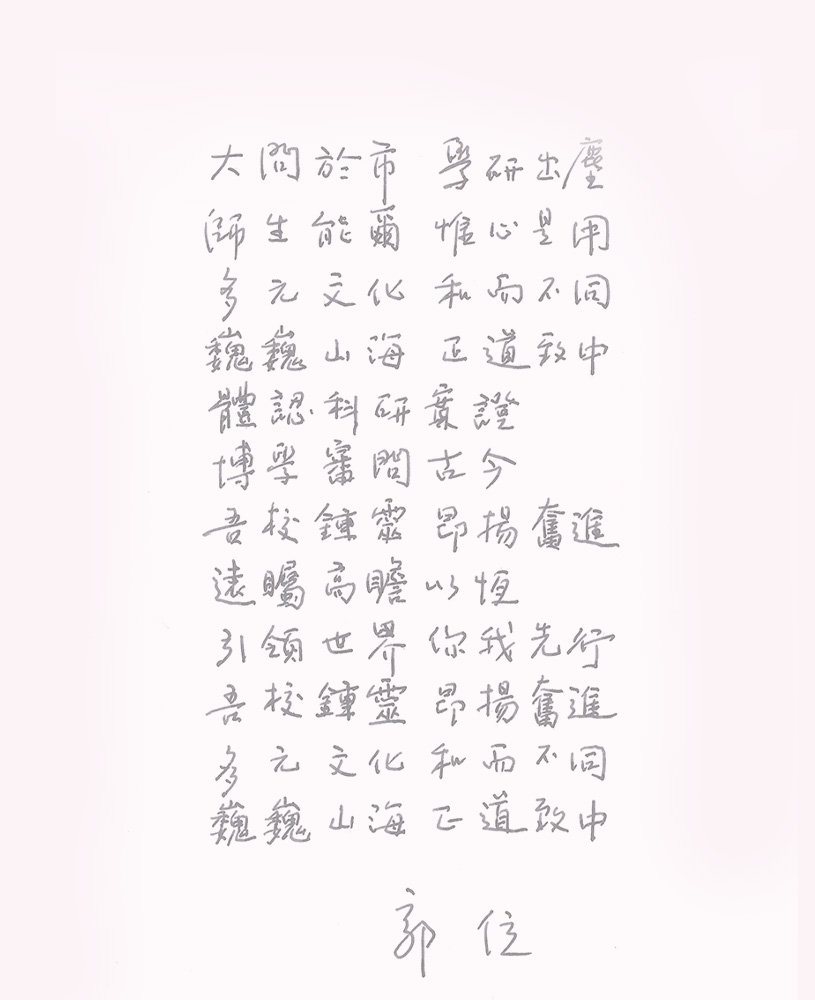 大問於市 學研出塵
師生能爾 惟心是用
多元文化 和而不同
巍巍山海 正道致中
體認科研棄證
博學審問古今
吾校鍾靈 昂揚奮進
遠矚高瞻以恆
引領世界 你我先行
吾校鍾靈 昂揚奮進
多元文化 和而不同
巍巍山海 正道致中
郭位